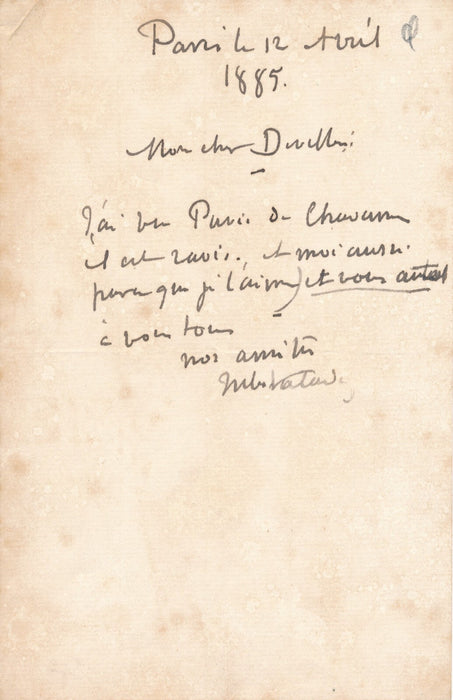 Paris le 12 Avril
1885.
Mon cher
J'ai vu Puvis de Chavannes
il est ravi. et moi aussi
parce que je l'aime) et vous
à vous tous
nos amitiés